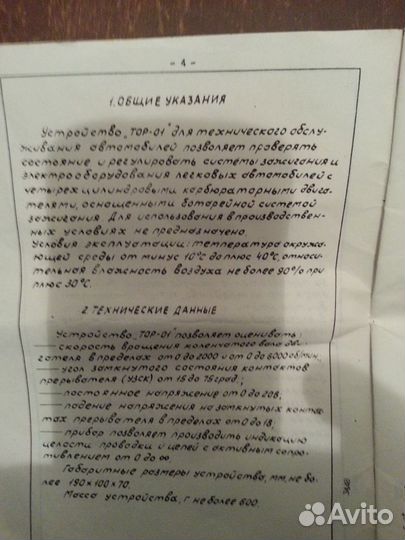 - 4 -
1. ОБЩИЕ УКАЗАНИЯ
Устройство „ТОР-01" для технического обслу-
живания автомобилей позволяет проверять
состояние и регулировать системы зажигания и
электрооборудования легковых автомобилей с
четырехцилиндровыми карбюраторными двига-
телями, оснащенными батарейной системой
зажигания. Для использования в производствен-
ных условиях не предназначено.
Условия эксплуатации: температура окружа-
ющей среды от минус 10°С до плюс 40°С, относи-
тельная влажность воздуха не более 90% при
плюс 30°С.
2. ТЕХНИЧЕСКИЕ ДАННЫЕ
Устройство „ТОР-01" позволяет оценивать:
— скорость вращения коленчатого вала дви-
гателя в пределах от 0 до 2000 и от 0 до 6000 об/мин;
— угол замкнутого состояния контактов
прерывателя (УЗСК) от 15 до 75 град.;
— постоянное напряжение от 0 до 20В;
— падение напряжения на замкнутых конта-
тах прерывателя в пределах от 0 до 1В;
— прибор позволяет производить индикацию
целости проводки и цепей с активным сопро-
тивлением от 0 до ∞.
Габаритные размеры устройства, мм, не бо-
лее 190×100×70.
Масса устройства, г не более 600.
Avito